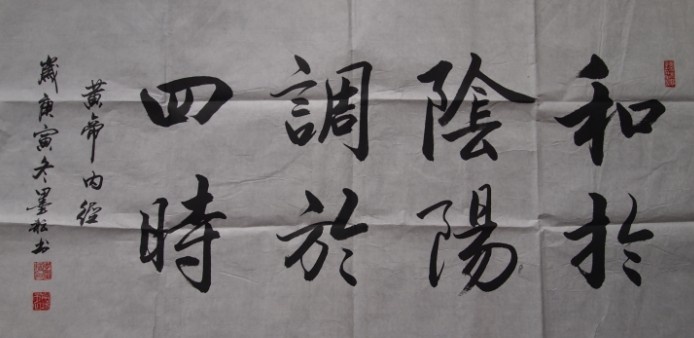 和於
陰陽
調於
四時
黄帝内經
歲庚寅冬墨松书